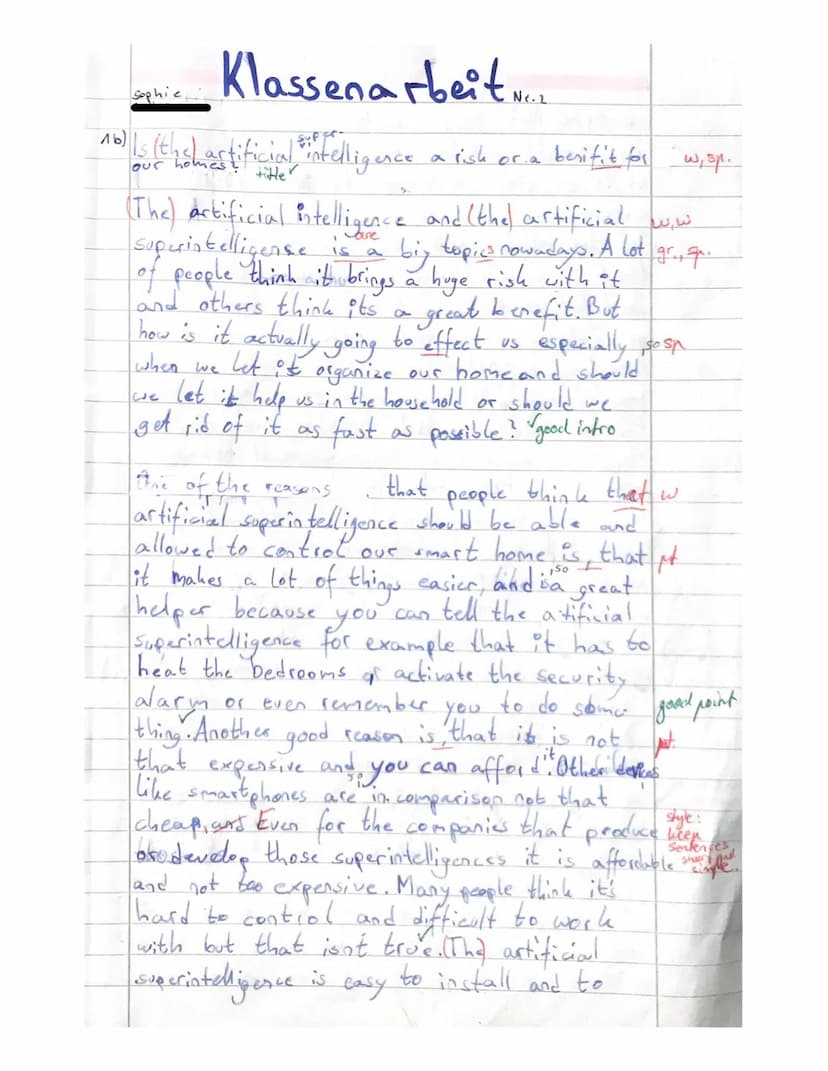 Klassenarbeit Nr. 2
Sophie
1b) Is (the) artificial super-intelligence a risk or a benifit for w, sp.
our homes? title ✓
(The) artificial intelligence and (the) artificial w, w
superintelligense is a are big topics nowadays. A lot gr., sp.
of people think it brings a huge risk with it
and others think its a great benefit. But
how is it actually going to effect us especially, so sp
when we let it organize our home and should
we let it help us in the household or should we
get rid of it as fast as possible? ✓ good intro
One of the reasons that people think that w
artificial superintelligence should be able and
allowed to control our smart home is, that pt
it makes a lot of things easier, and is ,so a great
helper because you can tell the atificial
superintelligence for example that it has to
heat the bedrooms or activate the security
alarm or even remember you to do some- good point
thing. ✓ Another good reason is, that it is not pt.
that expensive and you can afford it. Other devices
like smartphones are in comparison not that
cheap, and Even for the companies that produce style: keep
to develop those superintelligences it is affordable sentences short and
and not too expensive. Many people think it's simple.
hard to control and difficult to work
with but that isnt true. ✓ (The) artificial
superintelligence is easy to install and to